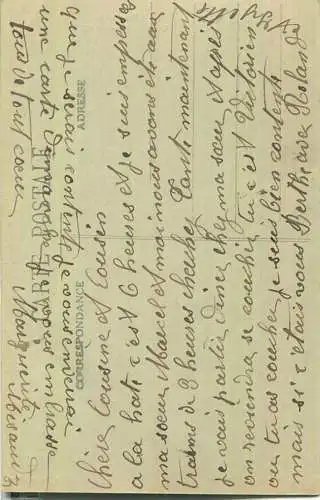 CARTE POSTALE
CORRESPONDANCE
ADRESSE
Chère Cousine et Cousin
a la hate c'est 6 heures et je suis empressée
ma soeur Marcel et moi nous avons été aux
trams de 9 heures chercher Tante maintenant
je vais partir diner chez ma soeur et après
on reviendra se coucher lui c'est Victorien
ou tu as coucher je suis bien contente
mais si c'était vous Berthe avec Rolande
que je serais contente je vous enverrai
une carte Dimanche je vous embrasse
tous de tout coeur
Marguerite